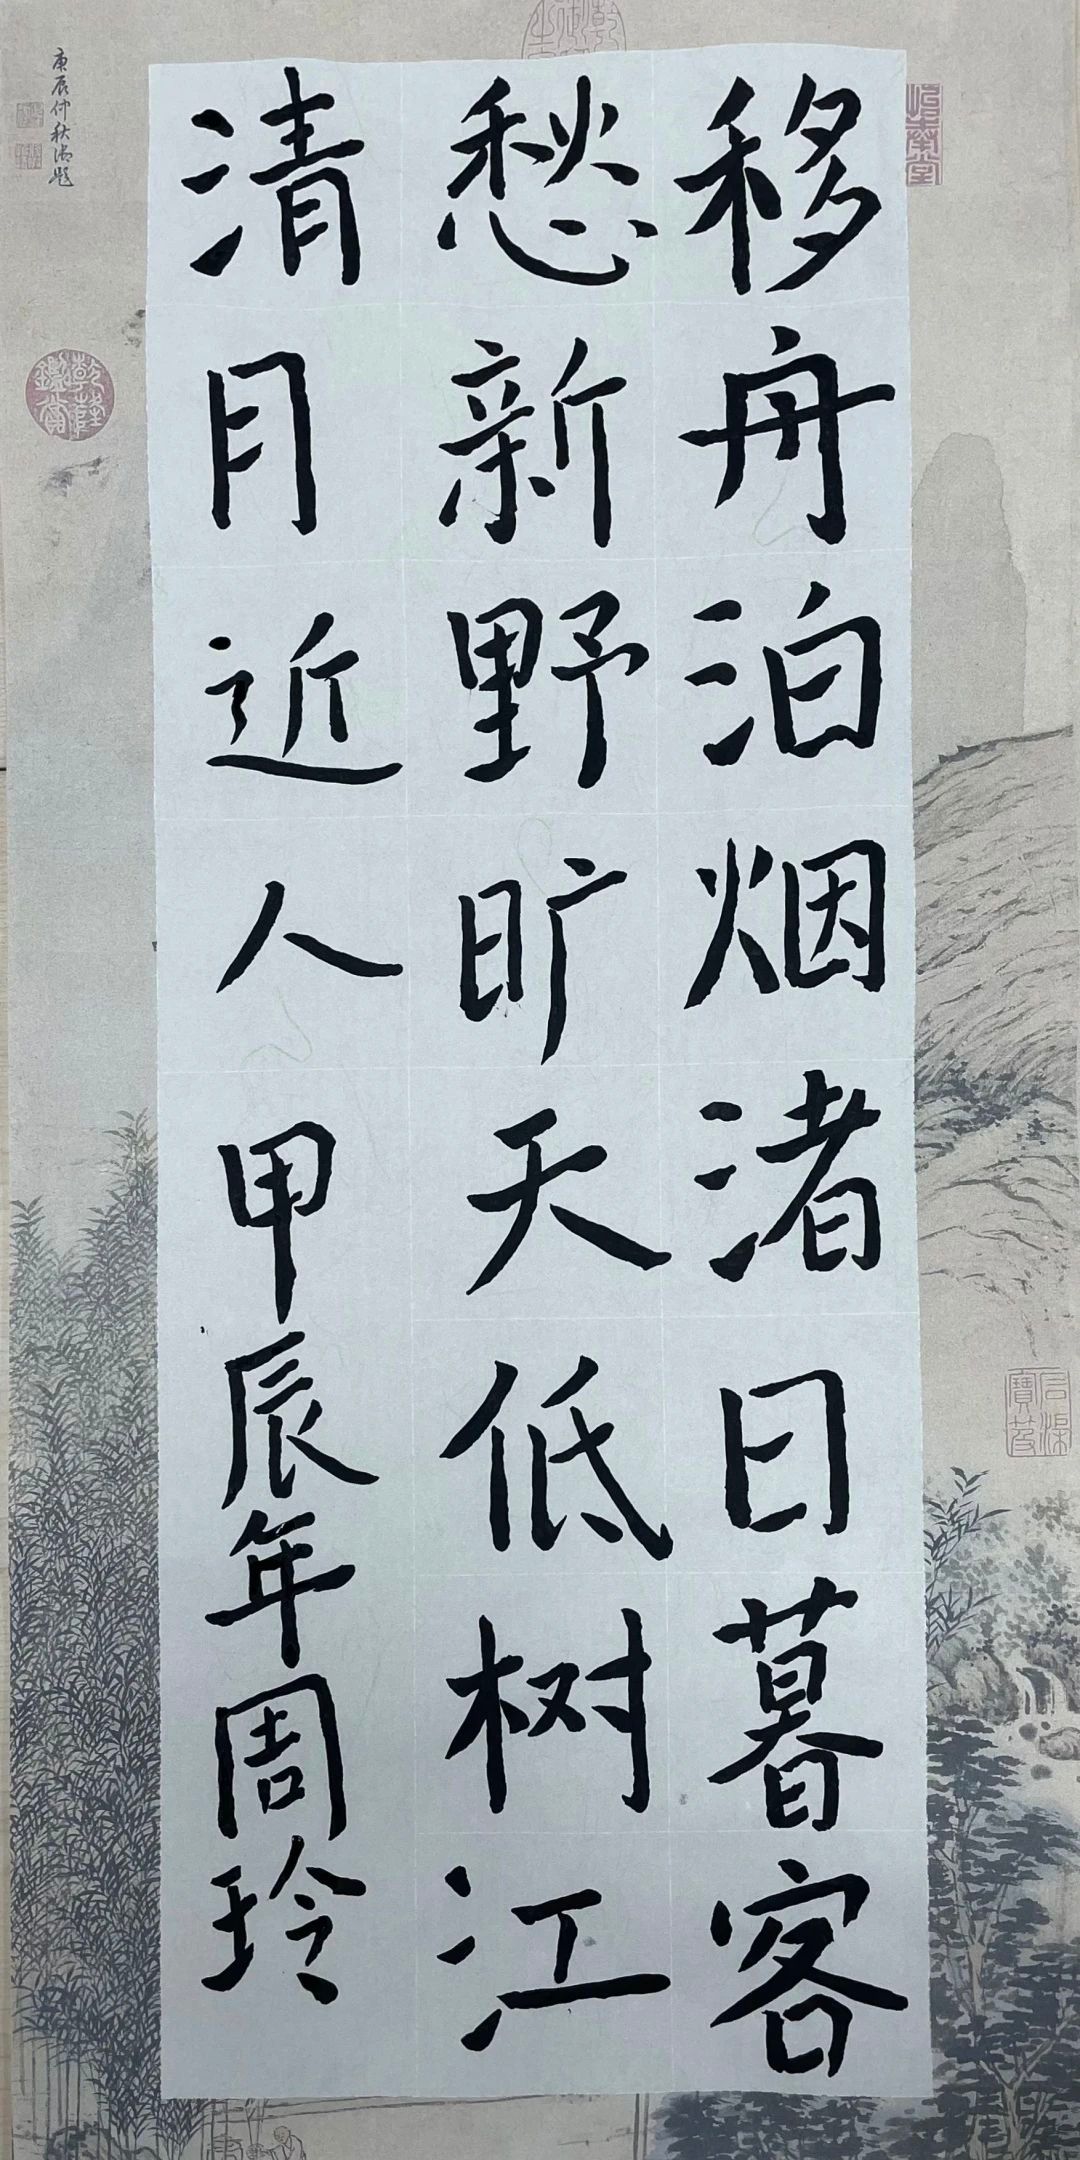 移舟泊烟渚日暮客
愁新野旷天低树江
清月近人甲辰年周玲
庚辰仲秋御题
乾隆鉴赏